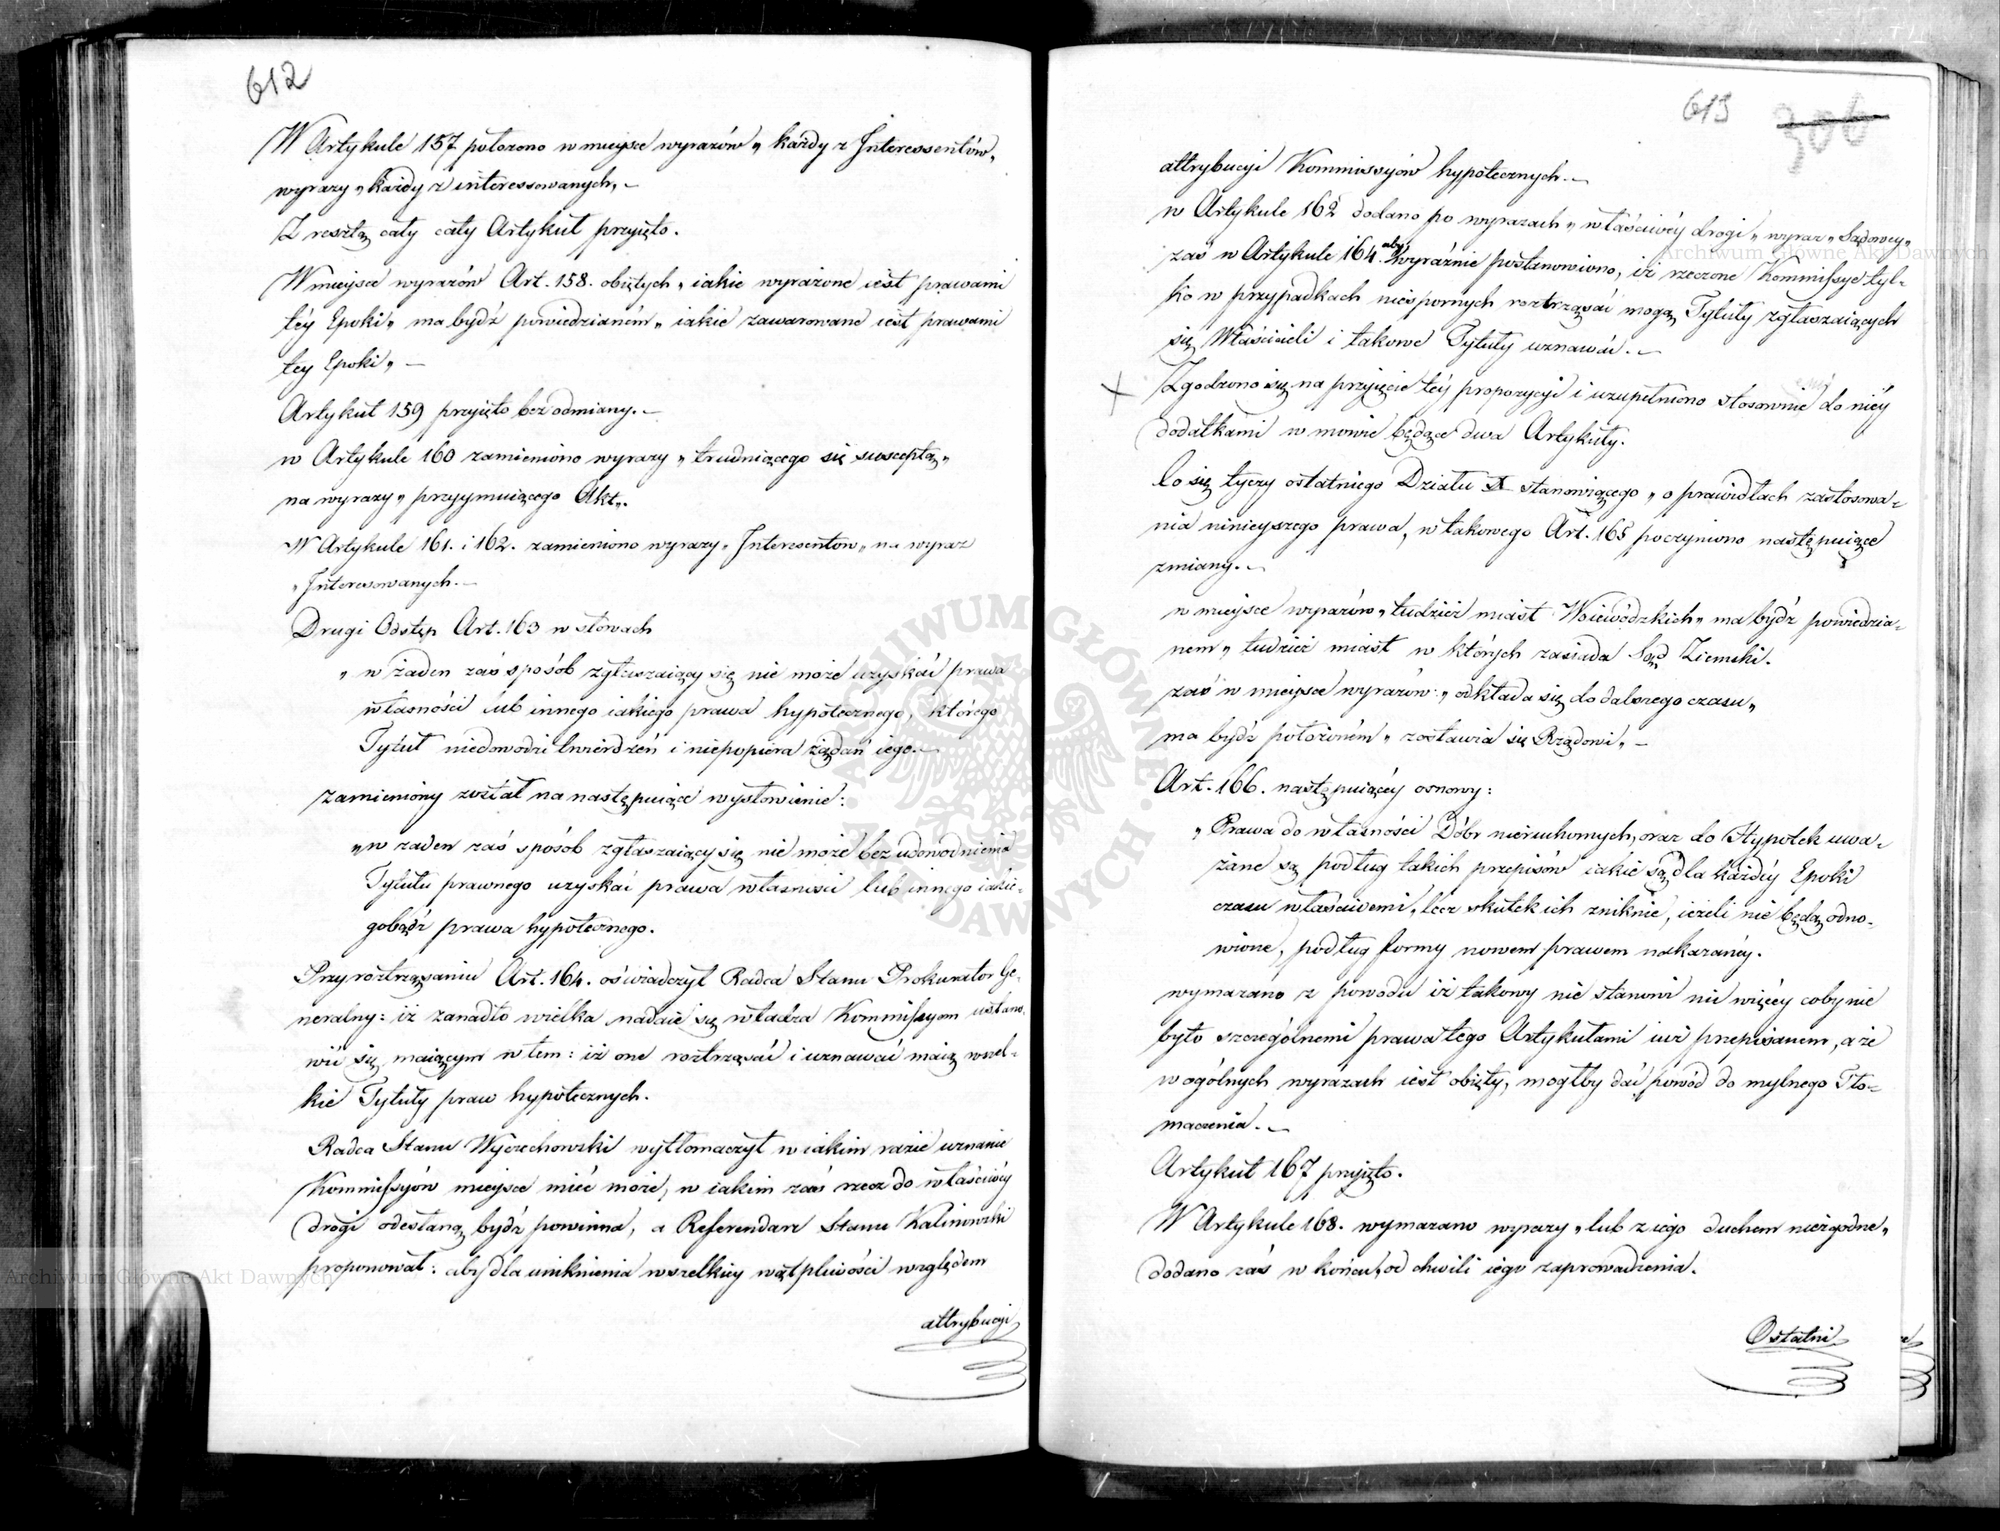 612
W Artykule 157 położono w mieysce wyrazów „ każdy z Interessentów „
wyrazy „ każdy z interessowanych „ —
Z resztą cały cały Artykuł przyięto.
W mieysce wyrazów Art. 158. obiętych „ iakie wyrażone iest prawami
téy Epoki „ ma bydź powiedzianém „ iakie zawarowane iest prawami
tey Epoki „ —
Artykuł 159 przyięto bez odmiany. —
w Artykule 160 zamieniono wyrazy „ trudniącego się susceptą „
na wyrazy „ przyymuiącego Akt „.
W Artykule 161. i 162. zamieniono wyrazy „ Interesentow „ na wyraz
„ Interesowanych. —
Drugi Odstęp Art. 163 w słowach
„ w żaden zaś sposób zgłaszaiący się nie może uzyskać prawa
własności lub innego iakiego prawa hypotecznego, którego
Tytuł niedowodzi twierdzeń i niepopiera żądań iego. —
zamieniony został na następuiące wysłowienie:
„ w żaden zaś sposób zgłaszaiący się nie może bez udowodnienia
Tytułu prawnego uzyskać prawa własności lub innego iakie-
gobądź prawa hypotecznego.
Przy roztrząsaniu Art. 164. oświadczył Radca Stanu Prokurator Ge-
neralny: iż zanadto wielka nadaie się władza Kommissyom ustano-
wić się maiącym w tem: iż one roztrząsać i uznawać maią wszel-
kie Tytuły praw hypotecznych.
Radca Stanu Wyczechowski wytłomaczył w iakim razie uznanie
Kommissyów mieysce mieć może, w iakim zaś rzecz do właściwéy
drogi odesłaną bydź powinna, a Referendarz Stanu Kalinowski
proponował: aby dla uniknienia wszelkiey wątpliwości względem
attrybucyi
613
306
attrybucyi Kommissyów hypotecznych. —
w Artykule 162 dodano po wyrazach „ właściwéy drogi „ wyraz „ Sądowey „
zaś w Artykule 164. aby wyraźnie postanowiono, iż rzeczone Kommissye tyl-
ko w przypadkach niespornych roztrząsać mogą Tytuły zgłaszaiących
się Właścicieli i takowe Tytuły uznawać. —
Zgodzono się na przyięcie téy propozycyi i uzupełniono stosownie do niéy
dodatkami w mowie będące dwa Artykuły.
Co się tyczy ostatniego Działu X stanowiącego „ o prawidłach zastosowa-
nia ninieyszego prawa, w takowego Art. 165 poczyniono następuiące
zmiany. —
w mieysce wyrazów „ tudzież miast Woiewódzkich „ ma bydź powiedzia-
nem „ tudzież miast w których zasiada Sąd Ziemski.
zaś w mieysce wyrazów: „ odkłada się do dalszego czasu „
ma bydź położoném „ zostawia się Rządowi „ —
Art. 166. następuiącéy osnowy:
„ Prawa do własności Dóbr nieruchomych, oraz do Hypotek uwa-
żane są podług takich przepisów iakie są dla każdéy Epoki
czasu właściwemi, lecz skutek ich zniknie, ieżeli nie będą odno-
wione, podług formy nowem prawem nakazanéy.
wymazano z powodu iż takowy nie stanowi nic więcéy coby nie
było szczególnemi prawa tego Artykułami iuż przepisanem, a że
w ogólnych wyrazach iest obięty, mogłby dać powód do mylnego Tło-
maczenia. —
Artykuł 167 przyięto.
W Artykule 168. wymazano wyrazy „ lub z iego duchem niezgodne „
dodano zaś w końcu, od chwili iego zaprowadzenia.
Ostatni
Archiwum Główne Akt Dawnych
Archiwum Główne Akt Dawnych
ARCHIWUM GŁÓWNE AKT DAWNYCH